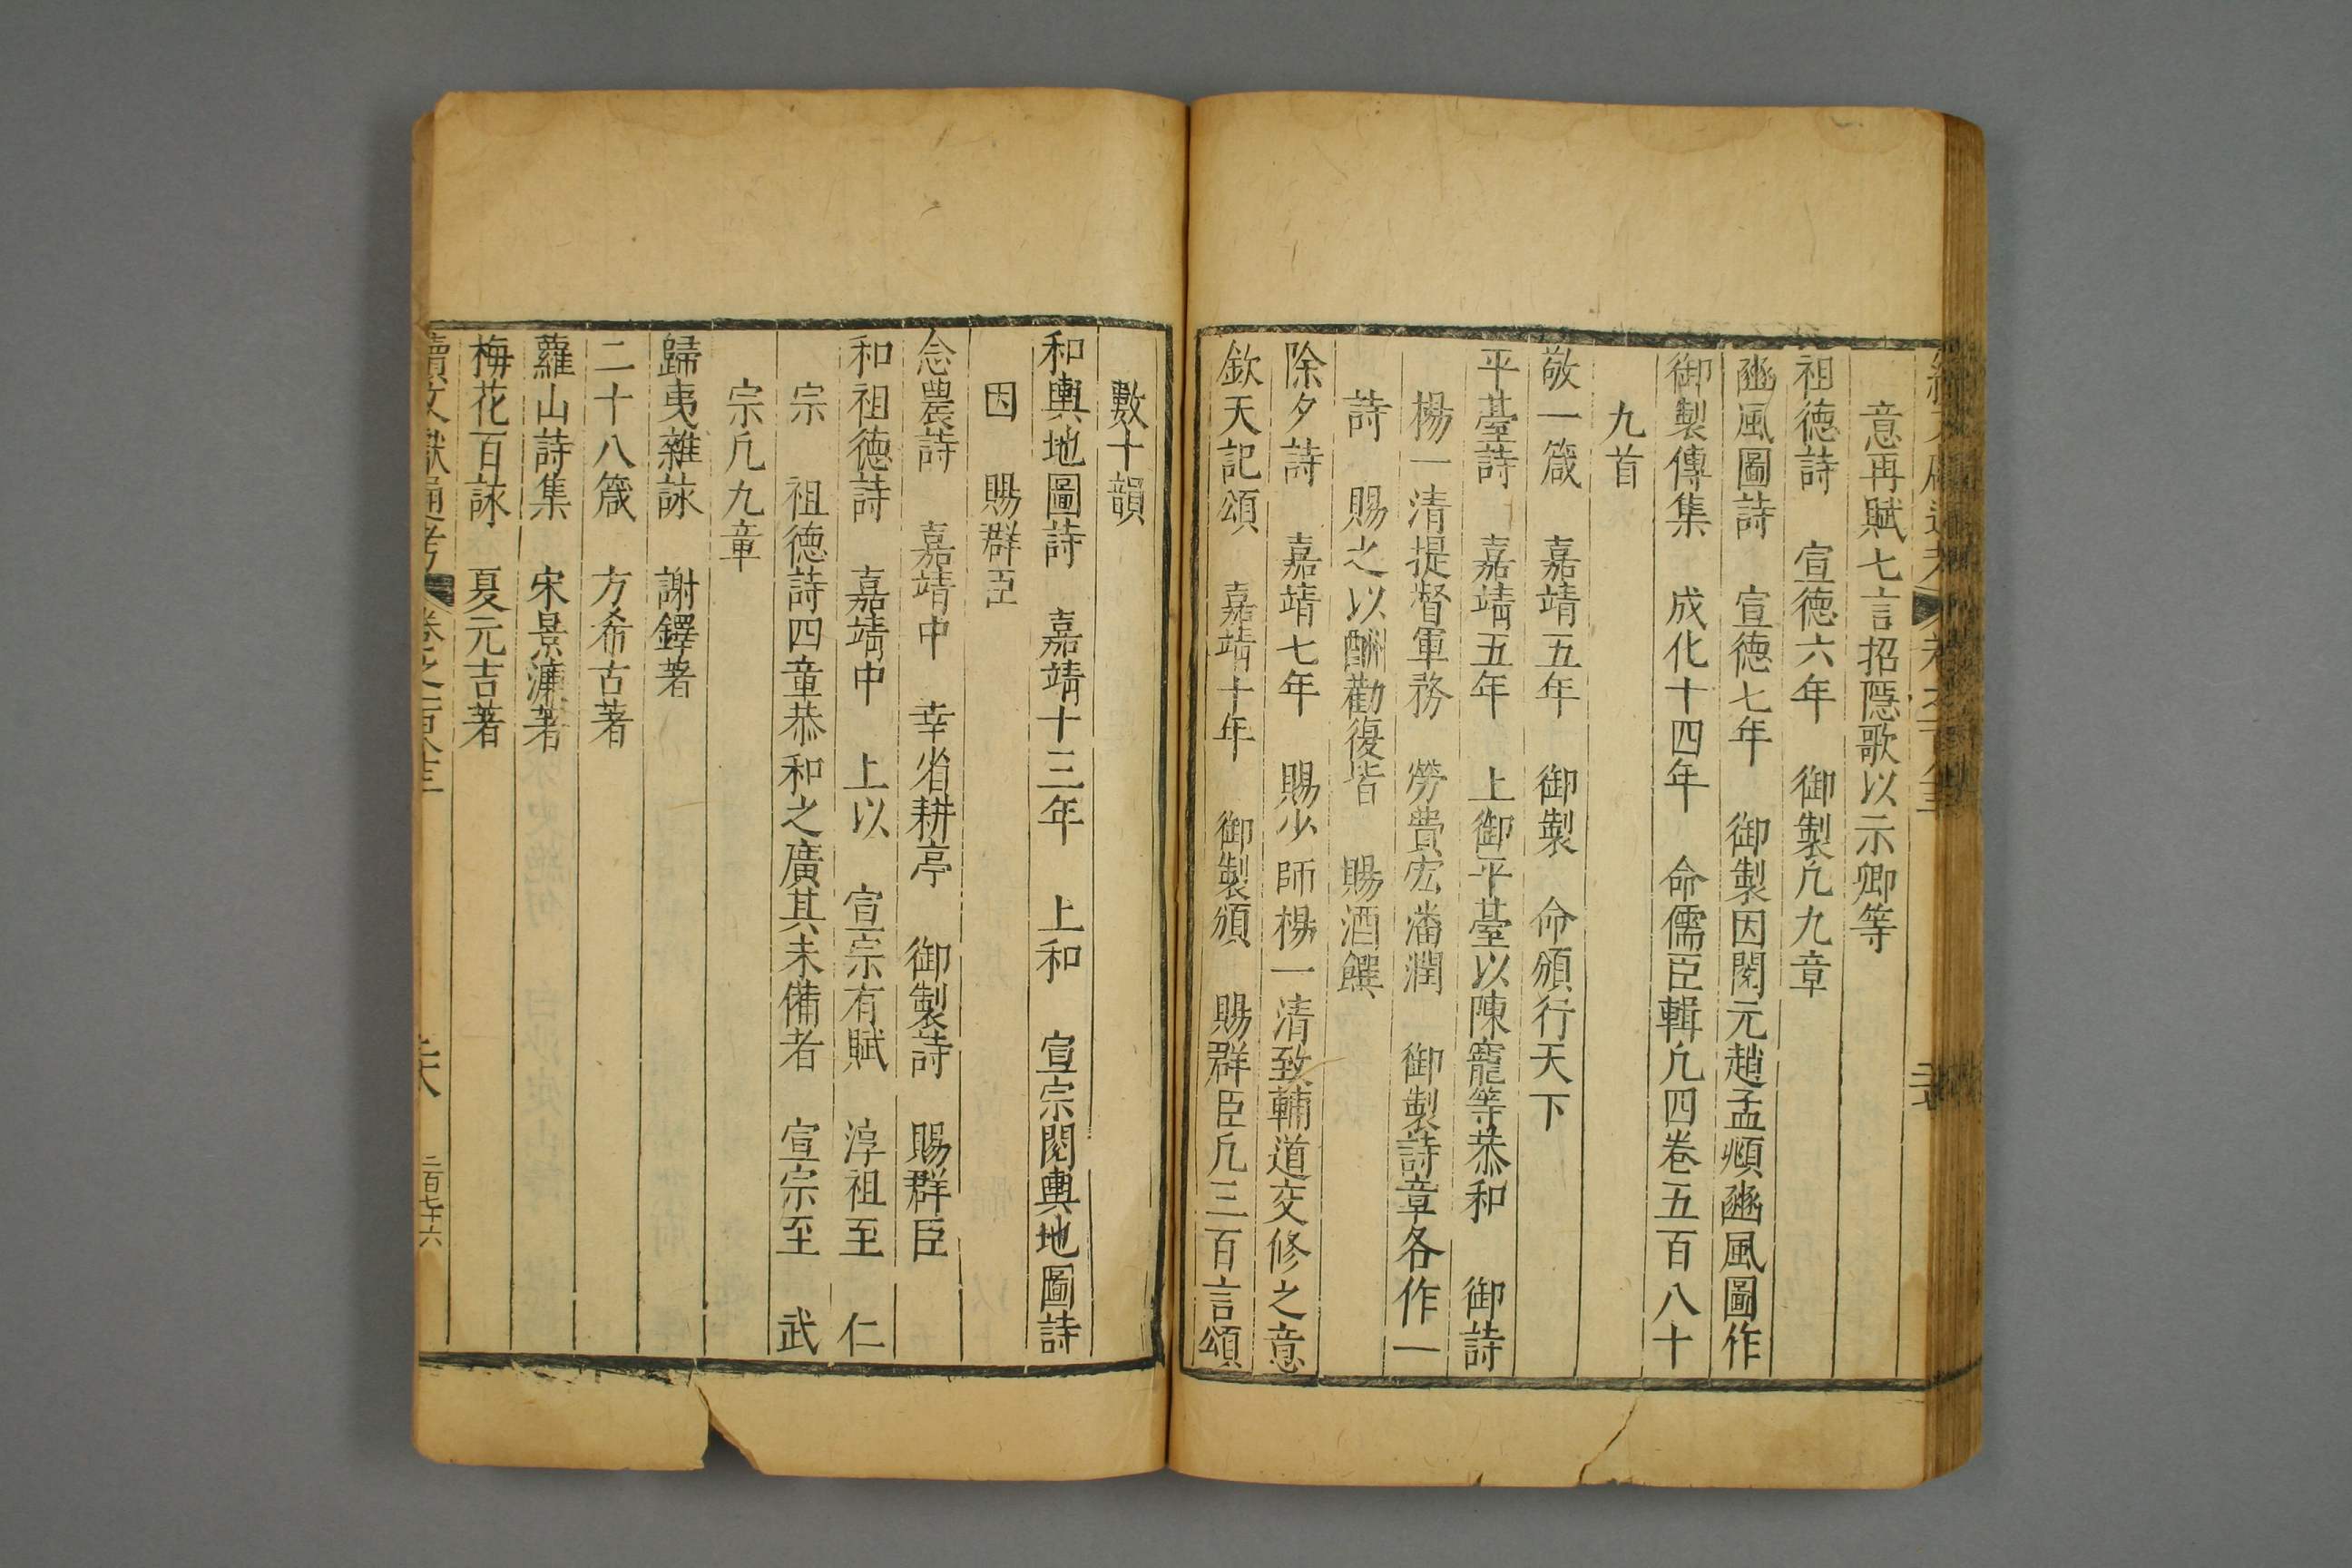 意再賦七言招隱歌以示卿等
祖德詩　宣德六年　御製凢九章
豳風圖詩　宣德七年　御製因閱元趙孟頫豳風圖作
御製傳集　成化十四年　命儒臣輯凢四卷五百八十
九首
敬一箴　嘉靖五年　御製　命頒行天下
平臺詩　嘉靖五年　上御平臺以陳寵等恭和　御詩
楊一清提督軍務　勞費宏潘潤　御製詩章各作一
詩　賜之以酬勸復皆　賜酒饌
除夕詩　嘉靖七年　賜少師楊一清致輔道交修之意
欽天記頌　嘉靖十年　御製頒　賜群臣凢三百言頌
數十韻
和輿地圖詩　嘉靖十三年　上和　宣宗閱輿地圖詩
因　賜群臣
念農詩　嘉靖中　幸省耕亭　御製詩　賜群臣
和祖德詩　嘉靖中　上以　宣宗有賦　淳祖至　仁
宗　祖德詩四章恭和之廣其未備者　宣宗至　武
宗凢九章
歸夷雜詠　謝鐸著
二十八箴　方希古著
蘿山詩集　宋景濂著
梅花百詠　夏元吉著
續文獻通考　卷之一百八十三　　二百七十六